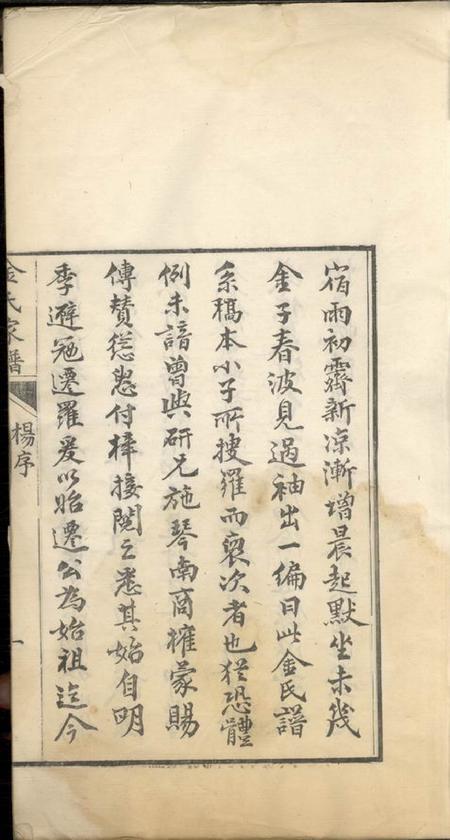 宿雨初霽新凉漸增晨起默坐未幾
金子春波見過袖出一編曰此金氏譜
系稿本小子所搜羅而裒次者也猶恐體
例未諳曾與研兄施琴南商榷蒙賜
傳贊慫恿付梓接閱之悉其始自明
季避冦遷羅爰以貽遷公為始祖迄今
金氏家譜
楊序
一